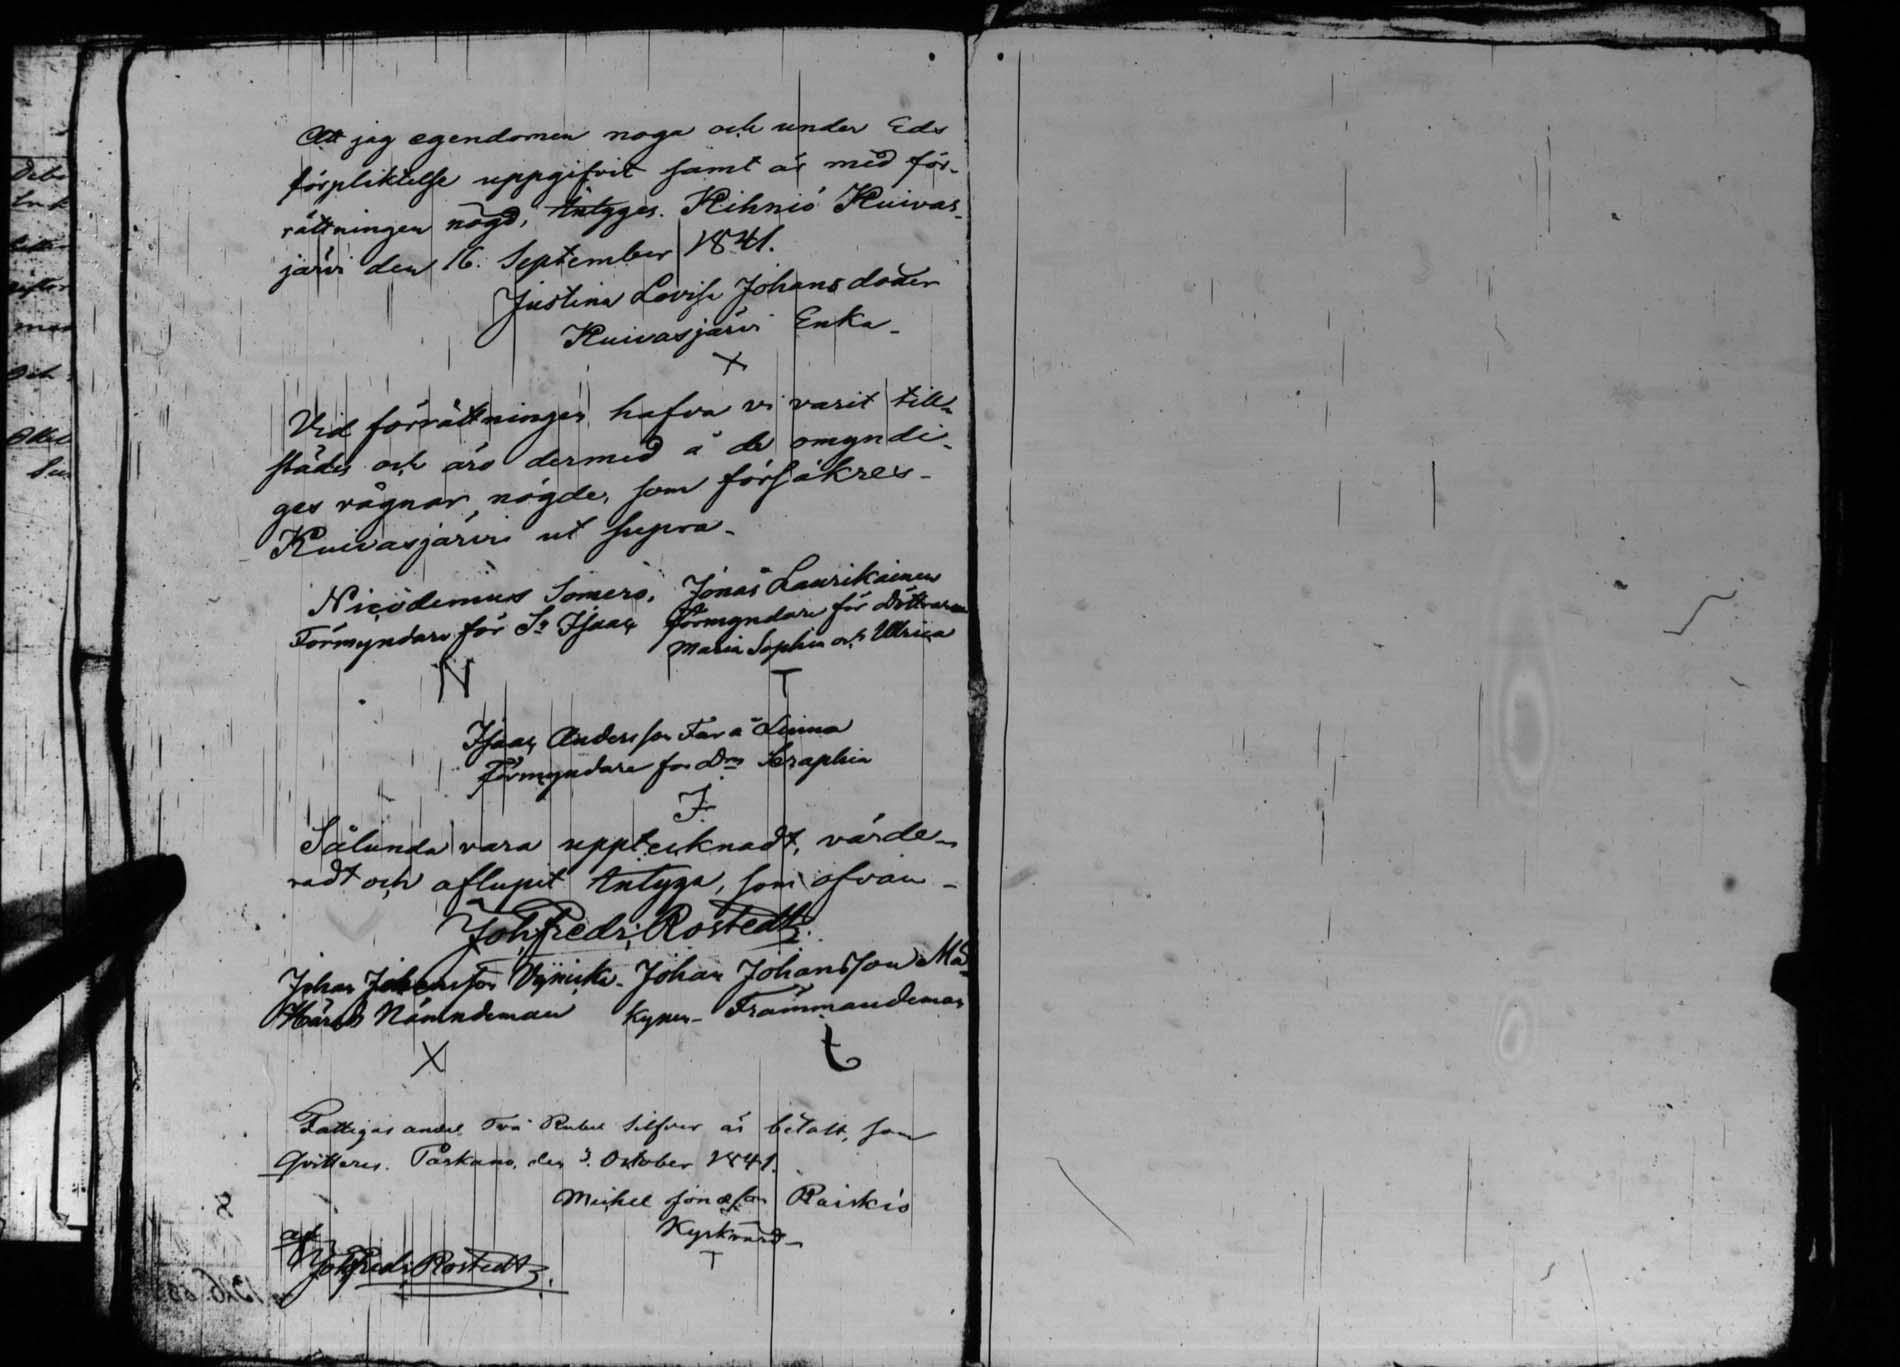 Att jag egendomen noga och under Eds
förpliktelse uppgifvit samt är med för-
rättningen nögd, intyges. Kihniö Kuivas-
järvi den 16. September 1841.
Justina Lovisa Johansdotter
Kuivasjärvi Enka-
X
Vid förrättningen hafva vi varit till-
städes och äro dermed å de omyndi-
ges vägnar nögde, som försäkres-
Kuivasjärvi ut supra-
Nicodemus Somero, Jonas Laurikainen
Förmyndare för Sn Isaac Förmyndare för Döttrarne
Maria Sophia och Ulrica
N T
Isaac Andersson Linna
Förmyndare för Dn Seraphia
I
Sålunda vara upptecknadt, värde-
radt och aflupit intyga, som ofvan-
Joh. Fredr. Rostedt.
Johan Johansson Johan Johansson Mä-
Härads Nämndeman kynen- Främmandeman
X t
Fattigas andel Två Rubel Silfver är betalt, som
qvitteres. Parkano, den 3. October 1841.
Michel Jonasson Raiskio
Kyrkvärd-
T
af
Joh. Fredr. Rostedt.